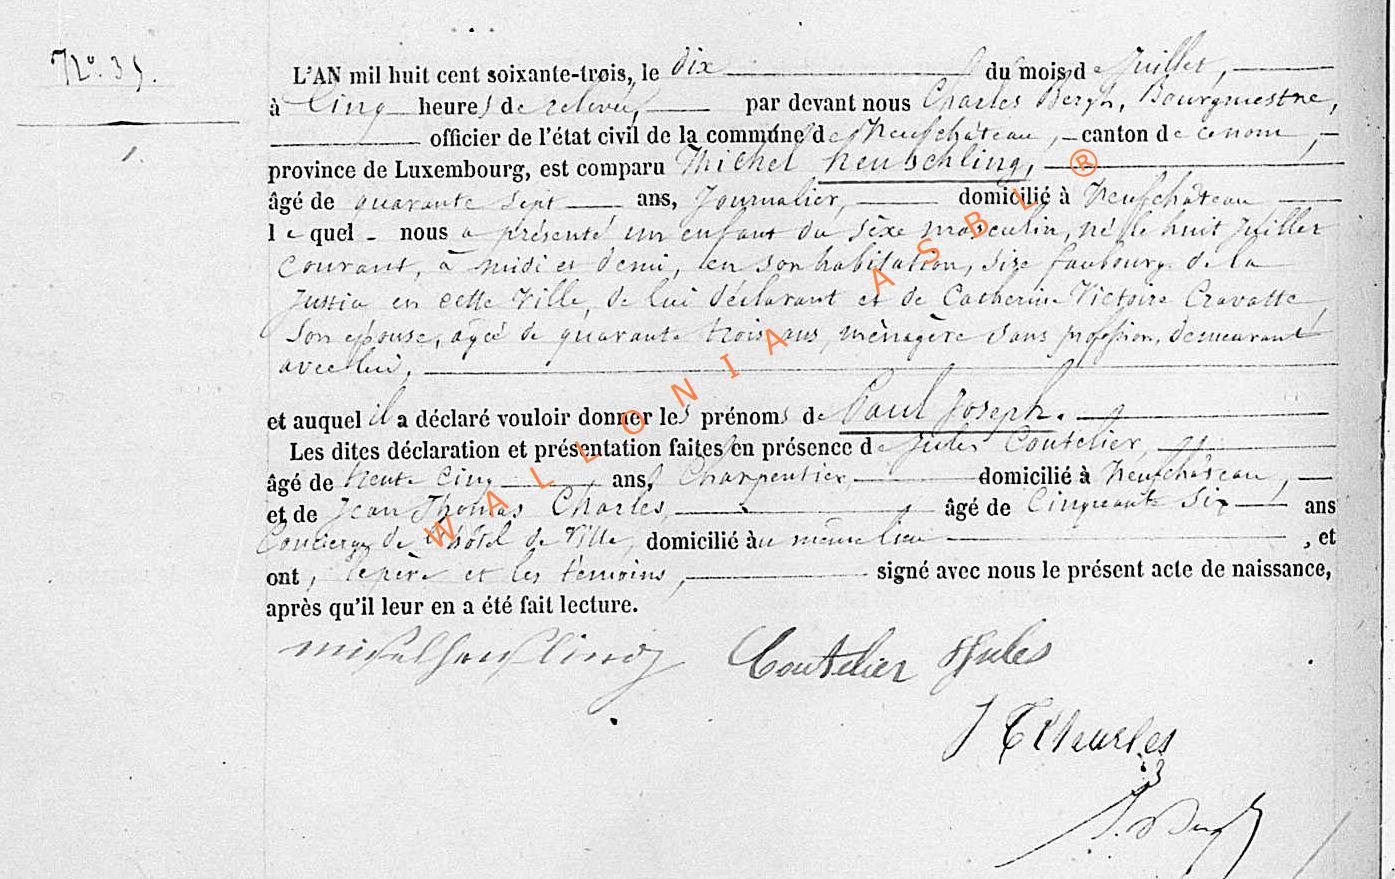 N° 35.
L'AN mil huit cent soixante-trois, le dix du mois de Juillet,
à Cinq heures de relevée, par devant nous Charles Bergh, Bourgmestre,
officier de l'état civil de la commune de Neufchâteau, canton de ce nom,
province de Luxembourg, est comparu Michel Heuschling,
âgé de quarante sept ans, Journalier, domicilié à Neufchâteau
lequel nous a présenté un enfant du sèxe masculin, né le huit Juillet
Courant, à midi et demi, en son habitation, size faubourg de la
Justice en cette Ville, de lui déclarant et de Catherine Victoire Cravatte
son épouse, agée de quarante trois ans, ménagère sans profession, demeurant
avec lui,
et auquel il a déclaré vouloir donner les prénoms de Paul Joseph.
Les dites déclaration et présentation faites en présence de Jules Coutelier,
âgé de trente Cinq ans, Charpentier domicilié à Neufchâteau,
et de Jean Thomas Charles, âgé de Cinquante Six ans
Concierge de l'hôtel de Ville, domicilié au même lieu , et
ont, le père et les témoins, signé avec nous le présent acte de naissance,
après qu'il leur en a été fait lecture.
Michel Heuschling Coutelier Jules
J T Charles
WALLONIA ASBL ®